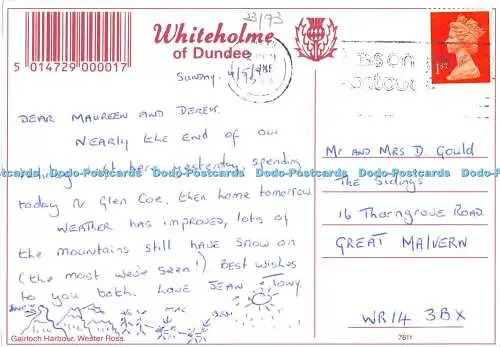 23/73
Whiteholme
of Dundee
5 014729 000017
Sunday.
1st
DEAR MAUREEN AND DEREK.
NEARLY the END of our
here yesterday, spending
today in Glen Coe, then home tomorrow
WEATHER HAS IMPROVED, lots of
the mountains still HAVE Snow on
(the most we've seen!) Best wishes
to you both. LOVE JEAN & TONY.
SNOW
MAC
BEN
Mr AND MRS D Gould
The Sidings
16 Thorngrove ROAD
GREAT MALVERN
WR14 3BX
Dodo-Postcards Dodo-Postcards Dodo-Postcards Dodo-Postcards
Gairloch Harbour, Wester Ross.
7611